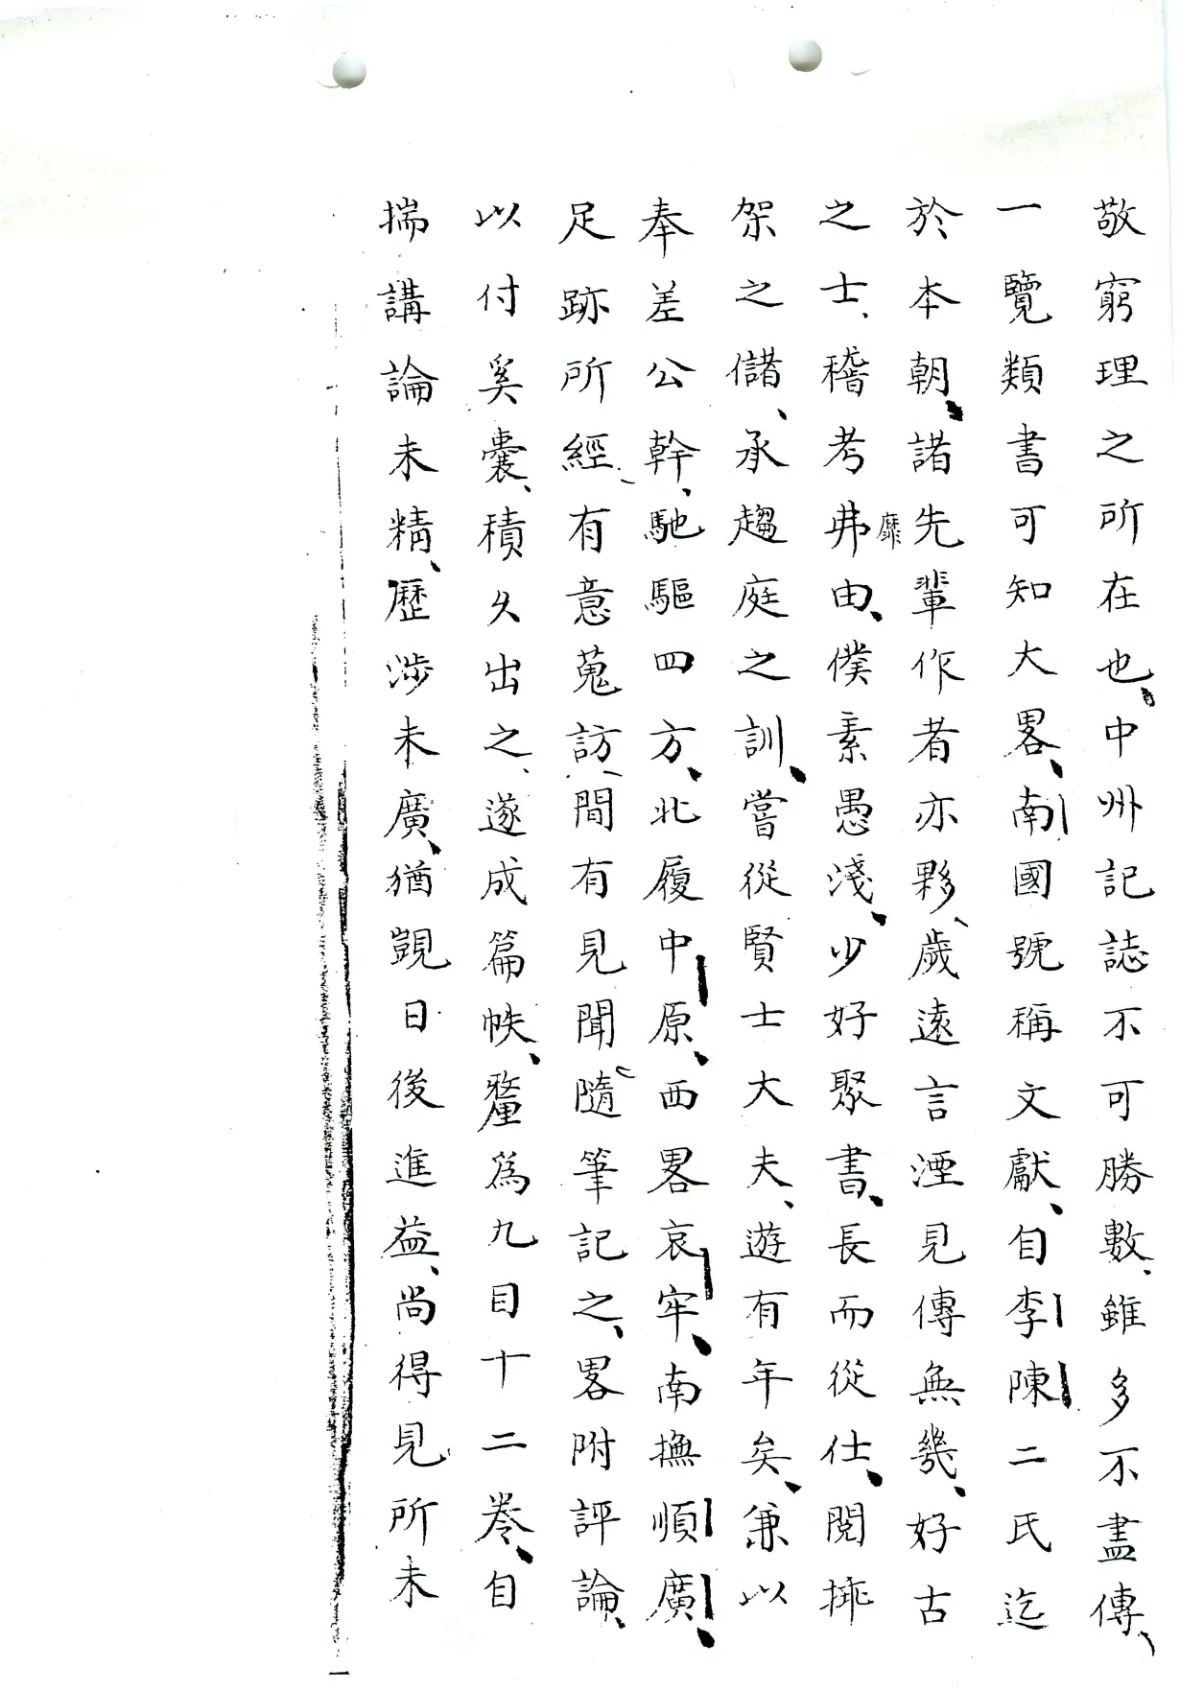 敬窮理之所在也、中州記誌不可勝數、雖多不盡傳、
一覽類書可知大畧、南國號稱文獻、自李陳二氏迄
於本朝、諸先輩作者亦夥、歲遠言湮見傳無幾、好古
之士、稽考弗由、僕素愚淺、少好聚書、長而從仕、閱排
靡
架之儲、承趨庭之訓、嘗從賢士大夫、遊有年矣、兼以
奉差公幹、馳驅四方、北履中原、西畧哀牢、南撫順廣、
足跡所經、有意蒐訪、間有見聞隨筆記之、畧附評論、
以付奚囊、積久出之、遂成篇帙、釐為九目十二卷、自
揣講論未精、歷涉未廣、猶覬日後進益、尚得見所未